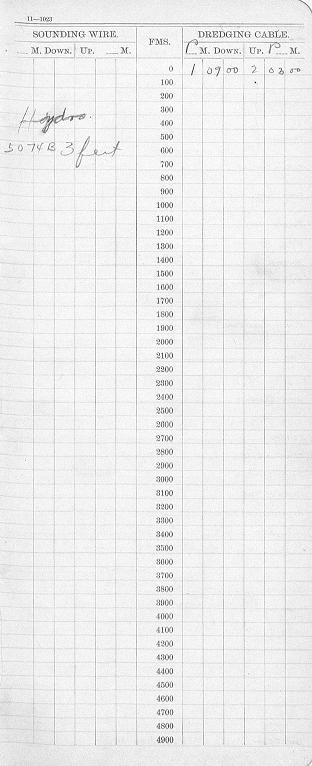 11—1023
SOUNDING WIRE. FMS. DREDGING CABLE.
M. DOWN. UP. M. P M. DOWN. UP. P M.
0 1 09 00 2 03 00
100
200
300
Hydro.
400
500
5074B 3 feet
600
700
800
900
1000
1100
1200
1300
1400
1500
1600
1700
1800
1900
2000
2100
2200
2300
2400
2500
2600
2700
2800
2900
3000
3100
3200
3300
3400
3500
3600
3700
3800
3900
4000
4100
4200
4300
4400
4500
4600
4700
4800
4900